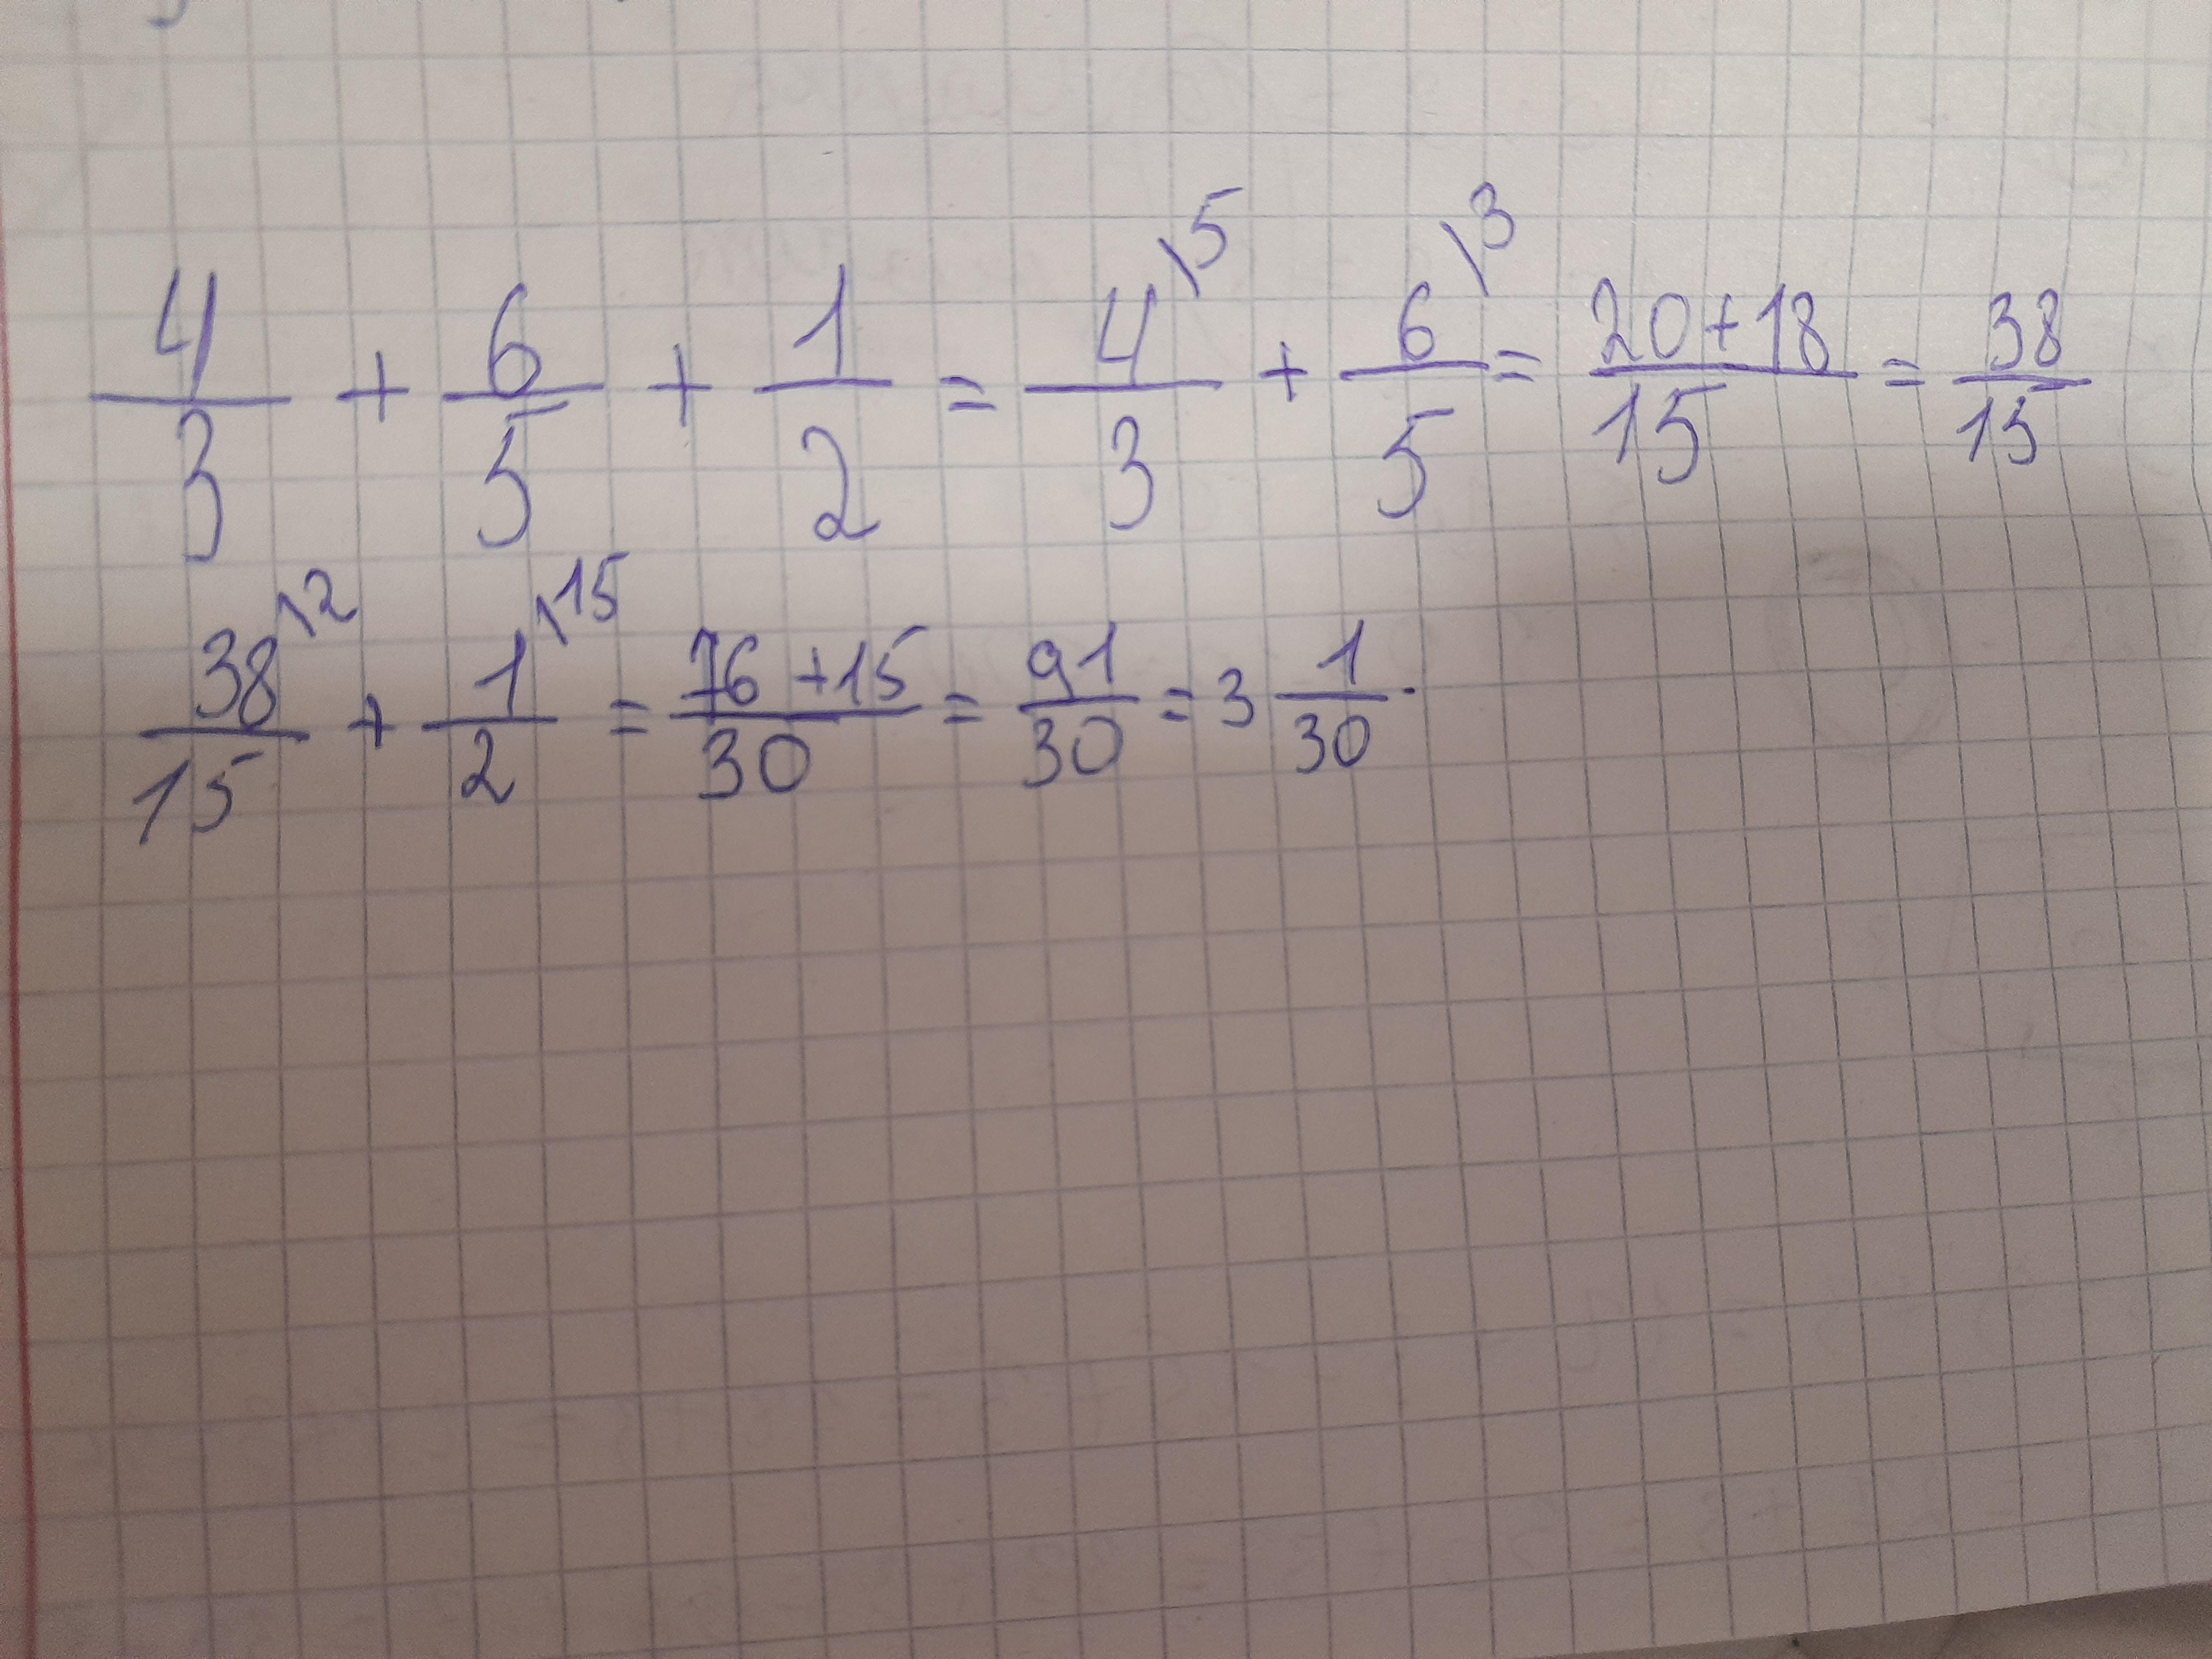 4/3 + 6/5 + 1/2 = 4\5/3 + 6\3/5 = 20+18/15 = 38/15
38\2/15 + 1\15/2 = 76+15/30 = 91/30 = 3 1/30.